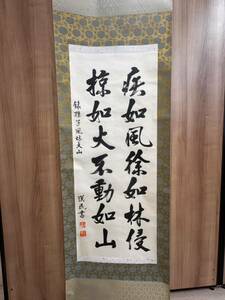 疾如風徐如林侵
掠如火不動如山
錄孫子風林火山